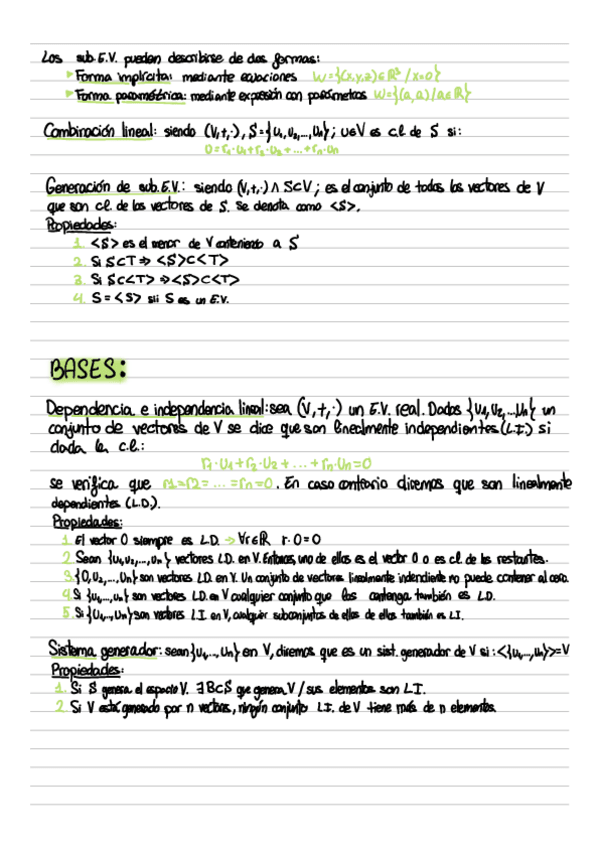 Los sub.E.V. pueden describirse de dos formas:
▸ Forma implícita: mediante ecuaciones W={(x,y,z)∈R³/x=0}
▸ Forma paramétrica: mediante expresión con parámetros W={(a,a)/a∈R}
Combinación lineal: siendo (V,+,·), S={u1,u2,...,un}; u∈V es c.l. de S si:
0=r1·u1+r2·u2+...+rn·un
Generación de sub.E.V.: siendo (V,+,·) ∧ S⊂V; es el conjunto de todos los vectores de V
que son c.l. de los vectores de S. Se denota como <S>.
Propiedades:
1. <S> es el menor de V conteniendo a S
2. Si S⊂T ⇒ <S>⊂<T>
3. Si S⊂<T> ⇒ <S>⊂<T>
4. S=<S> sii S es un E.V.
BASES:
Dependencia e independencia lineal: sea (V,+,·) un E.V. real. Dados {u1,u2,...,un} un
conjunto de vectores de V se dice que son linealmente independientes (L.I.) si
dada la c.l.:
r1·u1+r2·u2+...+rn·un=0
se verifica que r1=r2=...=rn=0. En caso contrario diremos que son linealmente
dependientes (L.D.).
Propiedades:
1. El vector 0 siempre es L.D. → ∀r∈R r·0=0
2. Sean {u1,u2,...,un} vectores L.D. en V. Entonces, uno de ellos es el vector 0 o es c.l. de los restantes.
3. {0,u2,...,un} son vectores L.D. en V. Un conjunto de vectores linealmente indendiente no puede contener al cero.
4. Si {u1,...,un} son vectores L.D. en V cualquier conjunto que los contenga también es L.D.
5. Si {u1,...,un} son vectores L.I. en V, cualquier subconjuntos de ellos de ellos también es L.I.
Sistema generador: sean {u1,...,un} en V, diremos que es un sist. generador de V si: <{u1,...,un}>=V
Propiedades:
1. Si S genera el espacio V. ∃B⊂S que genera V / sus elementos son L.I.
2. Si V está generado por n vectores, ningún conjunto L.I. de V tiene más de n elementos.